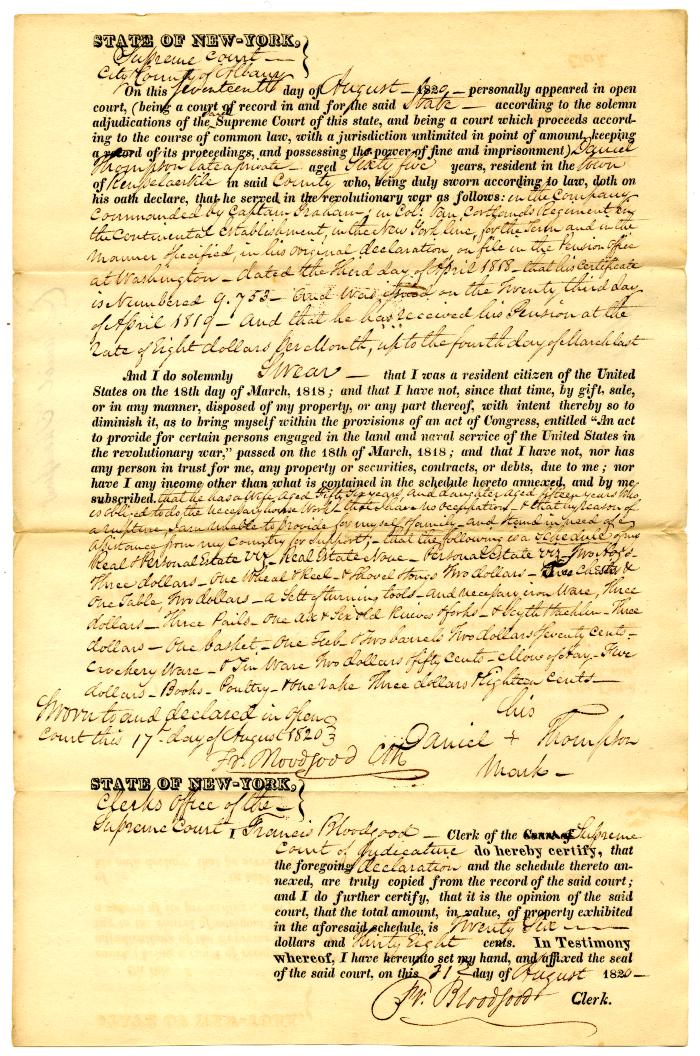 STATE OF NEW-YORK,
Supreme Court
City & County of Albany
On this Seventeenth day of August 1820, personally appeared in open
court, (being a court of record in and for the said State - according to the solemn
adjudications of the said Supreme Court of this state, and being a court which proceeds accord-
ing to the course of common law, with a jurisdiction unlimited in point of amount, keeping
a record of its proceedings, and possessing the power of fine and imprisonment) Daniel
Thompson late a private - aged Sixty five years, resident in the Town
of Rensselaerville in said County who, being duly sworn according to law, doth on
his oath declare, that he served in the revolutionary war as follows: in the Company
Commanded by Captain Graham, in Col. Van Cortlands Regiment on
the Continental Establishment, in the New York line, for the Term and in the
Manner Specified, in his original declaration on file in the Pension Office
at Washington - dated the Third day of April 1818 - that his Certificate
is Numbered 9,753 - And was issued on the Twenty third day
of April 1819 - And that he has received his Pension at the
rate of Eight dollars Per Month, up to the fourth day of March last
And I do solemnly Swear - that I was a resident citizen of the United
States on the 18th day of March, 1818; and that I have not, since that time, by gift, sale,
or in any manner, disposed of my property, or any part thereof, with intent thereby so to
diminish it, as to bring myself within the provisions of an act of Congress, entitled "An act
to provide for certain persons engaged in the land and naval service of the United States in
the revolutionary war," passed on the 18th of March, 1818; and that I have not, nor has
any person in trust for me, any property or securities, contracts, or debts, due to me; nor
have I any income other than what is contained in the schedule hereto annexed, and by me
subscribed. that he has a Wife, aged Fifty Six years, and daughter aged fifteen years who
is obliged to do the necessary house Work - that I have no occupation - & that by reason of
a rupture, I am Unable to provide for myself & family - and stand in need of
assistance from my Country for Support; - that the following is a Schedule of my
Real & Personal Estate viz, Real Estate None - Personal Estate viz - Two Hogs
Three dollars - One Wheel & Reel - & Shovel & tongs Two dollars - Chests &
One Table, Two dollars - a Sett of turning tools - and necessary iron Ware, Three
dollars - Three Pails - One ax & Six old Knives & forks - & Scyth - Three
dollars - One basket - One Tub - & Two barrels Two dollars Seventy Cents -
Crockery Ware - & Tin Ware Two dollars fifty Cents - a Mow of Hay - Five
dollars - Books - Poultry - & One rake Three dollars & Eighteen Cents -
Sworn to and declared in open
Court this 17th day of August 1820
his
Daniel + Thompson
Mark -
Fr. Bloodgood Clk
STATE OF NEW-YORK,
Clerks Office of the
Supreme Court, I Francis Bloodgood - Clerk of the Supreme
Court of Judicature do hereby certify, that
the foregoing declaration and the schedule thereto an-
nexed, are truly copied from the record of the said court;
and I do further certify, that it is the opinion of the said
court, that the total amount, in value, of property exhibited
in the aforesaid schedule, is Twenty Six
dollars and Thirty Eight cents. In Testimony
whereof, I have hereunto set my hand, and affixed the seal
of the said court, on this 21st day of August 1820 -
Fr. Bloodgood Clerk.